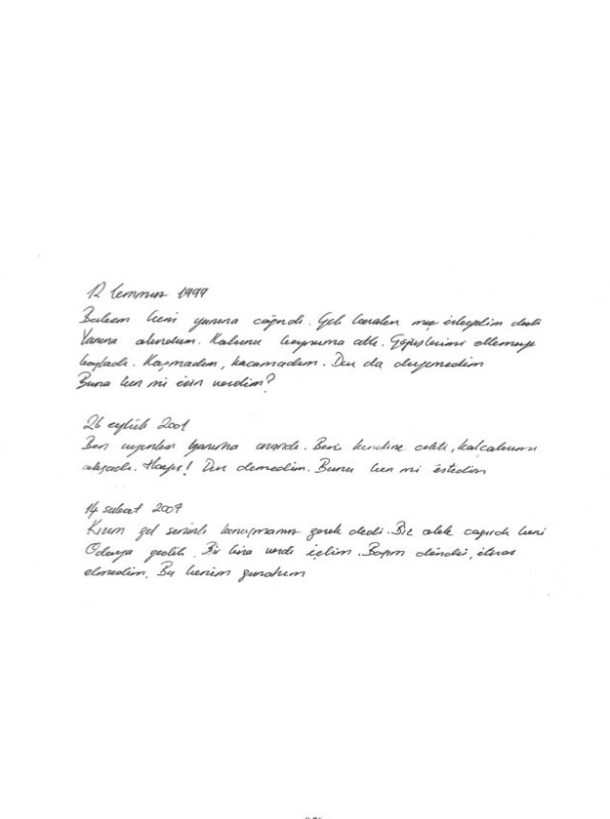 12 temmuz 1999
Babam beni yanına çağırdı. Gel beraber maç izleyelim dedi
Yanına oturdum. Kolunu boynuma attı. Göğüslerimi ellemeye
başladı. Kaçmadım, kaçamadım. Dur da diyemedim
Buna ben mi izin verdim?
26 eylül 2001
Ben uyurken yanıma uzandı. Beni kendine çekti, kalçalarımı
okşadı. Hayır! Dur demedim. Bunu ben mi istedim
14 şubat 2009
Kızım gel seninle konuşmamız gerek dedi. Bir otele çağırdı beni
Odaya geçtik. Bir bira verdi içtim. Başım döndü, itiraz
etmedim. Bu benim